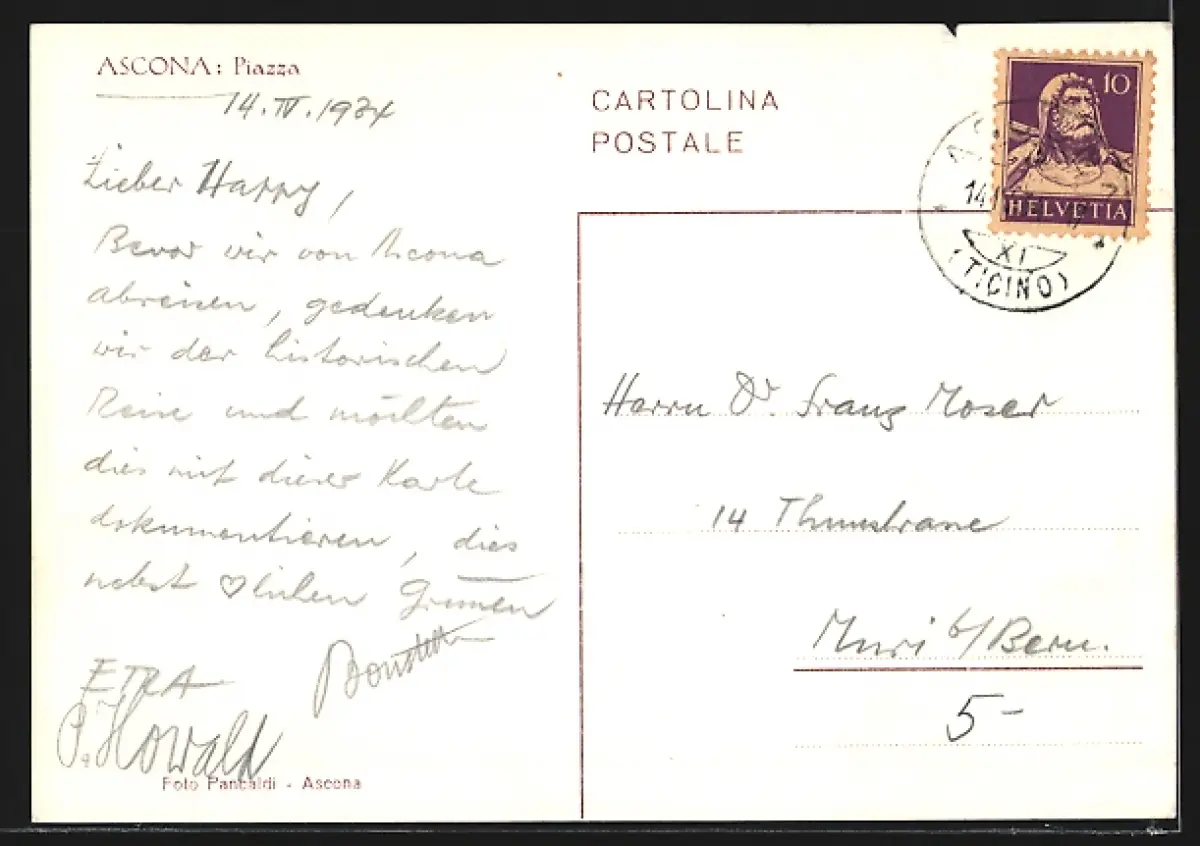 ASCONA: Piazza
14. IV. 1934
Lieber Harry,
Bevor wir von Ascona
abreisen, gedenken
wir der historischen
Reise und möchten
dies mit dieser Karte
dokumentieren, dies
nebst ♡lichen Grüssen
ETRA
P. Howald
Foto Pancaldi - Ascona
CARTOLINA
POSTALE
10
HELVETIA
14
XI
(TICINO)
Herrn Dr. Franz Moser
14 Thunstrasse
Muri b/Bern.
5-